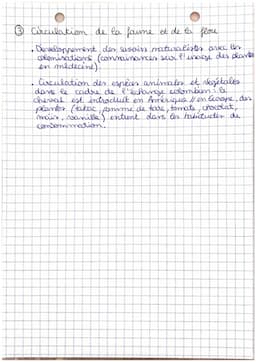 ③ Circulation de la faune et de la flore
• Développement des savoirs naturalistes avec les
colonisations (connaissances sur l'usage des plantes
en médecine).
• Circulation des espèces animales et végétales
dans le cadre de l'échange colombien : le
cheval est introduit en Amériques // en Europe, des
plantes (tabac, pomme de terre, tomate, chocolat,
maïs, vanille) entrent dans les habitudes de
consommation.